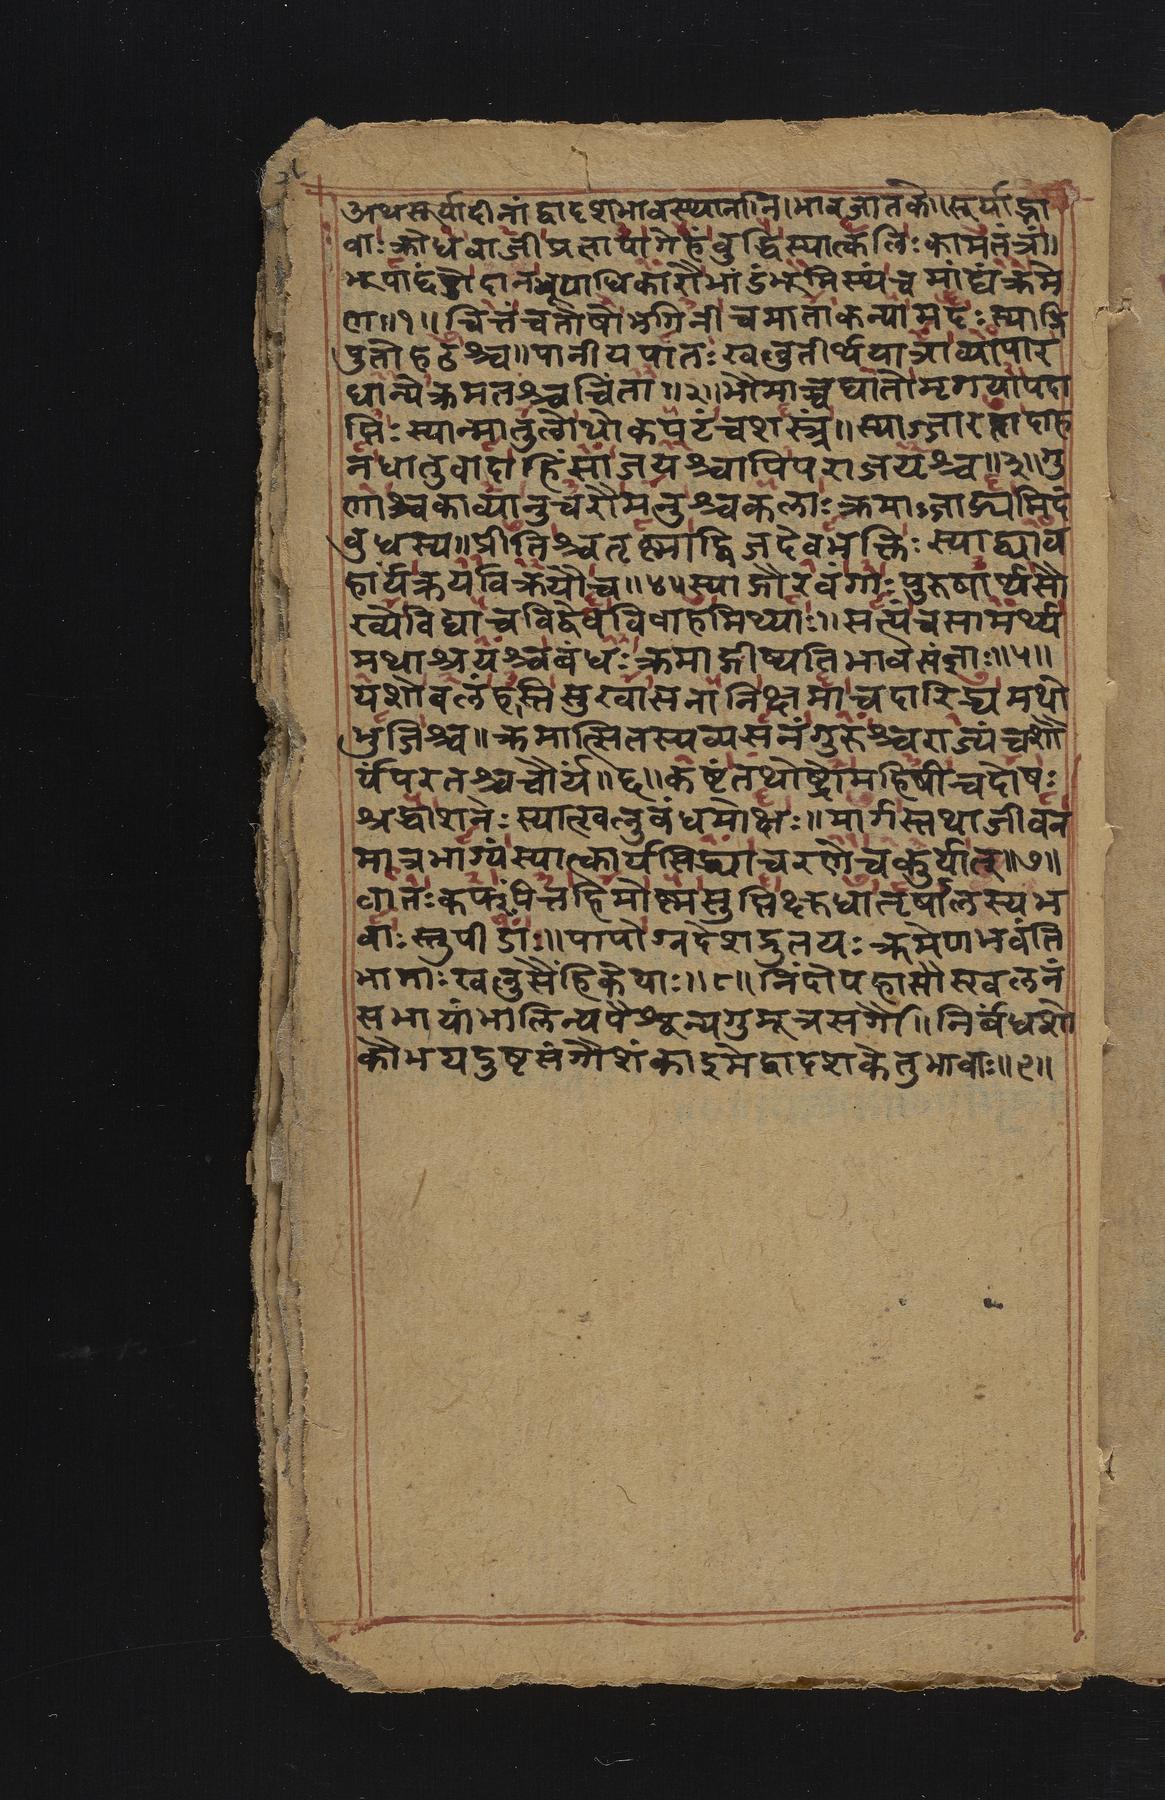 अथसूर्यादीनां द्वादशभावस्थानानि।भावजातके॥सूर्याद्भा
वाःक्रोधवाजीप्रलापागेहंवुद्धिस्यात्कलिःकामतंत्रं॥
भूषादंडोदानभूपाधिकारौभांडंभूमिस्यंचमांद्यंक्रमे
ण॥१॥चित्तंचतोषोभगिनीचमाताकन्यामदःस्याद्रि
पुतोहठश्च॥पानीयपातःखलुतीर्थयात्राव्यापार
धान्येक्रमतश्चचिंता॥२॥भौमाच्चघातोमृगयापदा
प्तिःस्यान्मातुलोथोकपटंचशस्त्रं॥स्याज्जारतादाह
नधातुवादाहिंसाजयश्चापिपराजयश्च॥३॥गु
णाश्चकाव्यानुचरौमनुश्चकलाःक्रमाज्जाड्यमिदं
वुधस्य॥प्रीतिश्चतृष्माद्विजदेवभक्तिःस्याद्व्याव
हार्यक्रयविक्रयौच॥४॥स्याद्गौरवंगोःपुरुषार्थसौ
ख्येविद्याचविद्वेषविवाहमिथ्याः॥सत्यंचसामर्थ्य
मथाश्रयंश्चवंधःक्रमाद्गीष्पतिभावसंज्ञाः॥५॥
यशोबलंहस्तिसुखासनानिक्षमाचदारिद्र्यमथो
भुजिश्च॥क्रमात्सितस्यव्यसनंगुरुश्चराज्यंचशौ
र्यंपरतश्चचौर्यं॥६॥कष्टंतथोष्ट्रोमहिषीचदोषः
श्रद्धाशनिःस्यात्खलुवंधमोक्षः॥मार्गस्तथाजीवन
मात्रभाग्यंस्यात्कार्यसिद्ध्याचरणेचकुर्यात्॥७॥
वातःकफंपित्तहिमोष्मसुप्तिक्ष्रुधातृषालस्यभ
वाःस्तुपीडाः॥पापोग्नदेशद्रुतयःक्रमेणभवंति
भावाःखलुसैंहिकेयाः॥८॥निंदोपहासौस्खलनं
सभायांमालिन्यपैशून्यगुमूत्रसर्गाः॥निर्बंधशो
कौभयदुष्टसंगौशंकाइमेद्वादशकेतुभावाः॥९॥